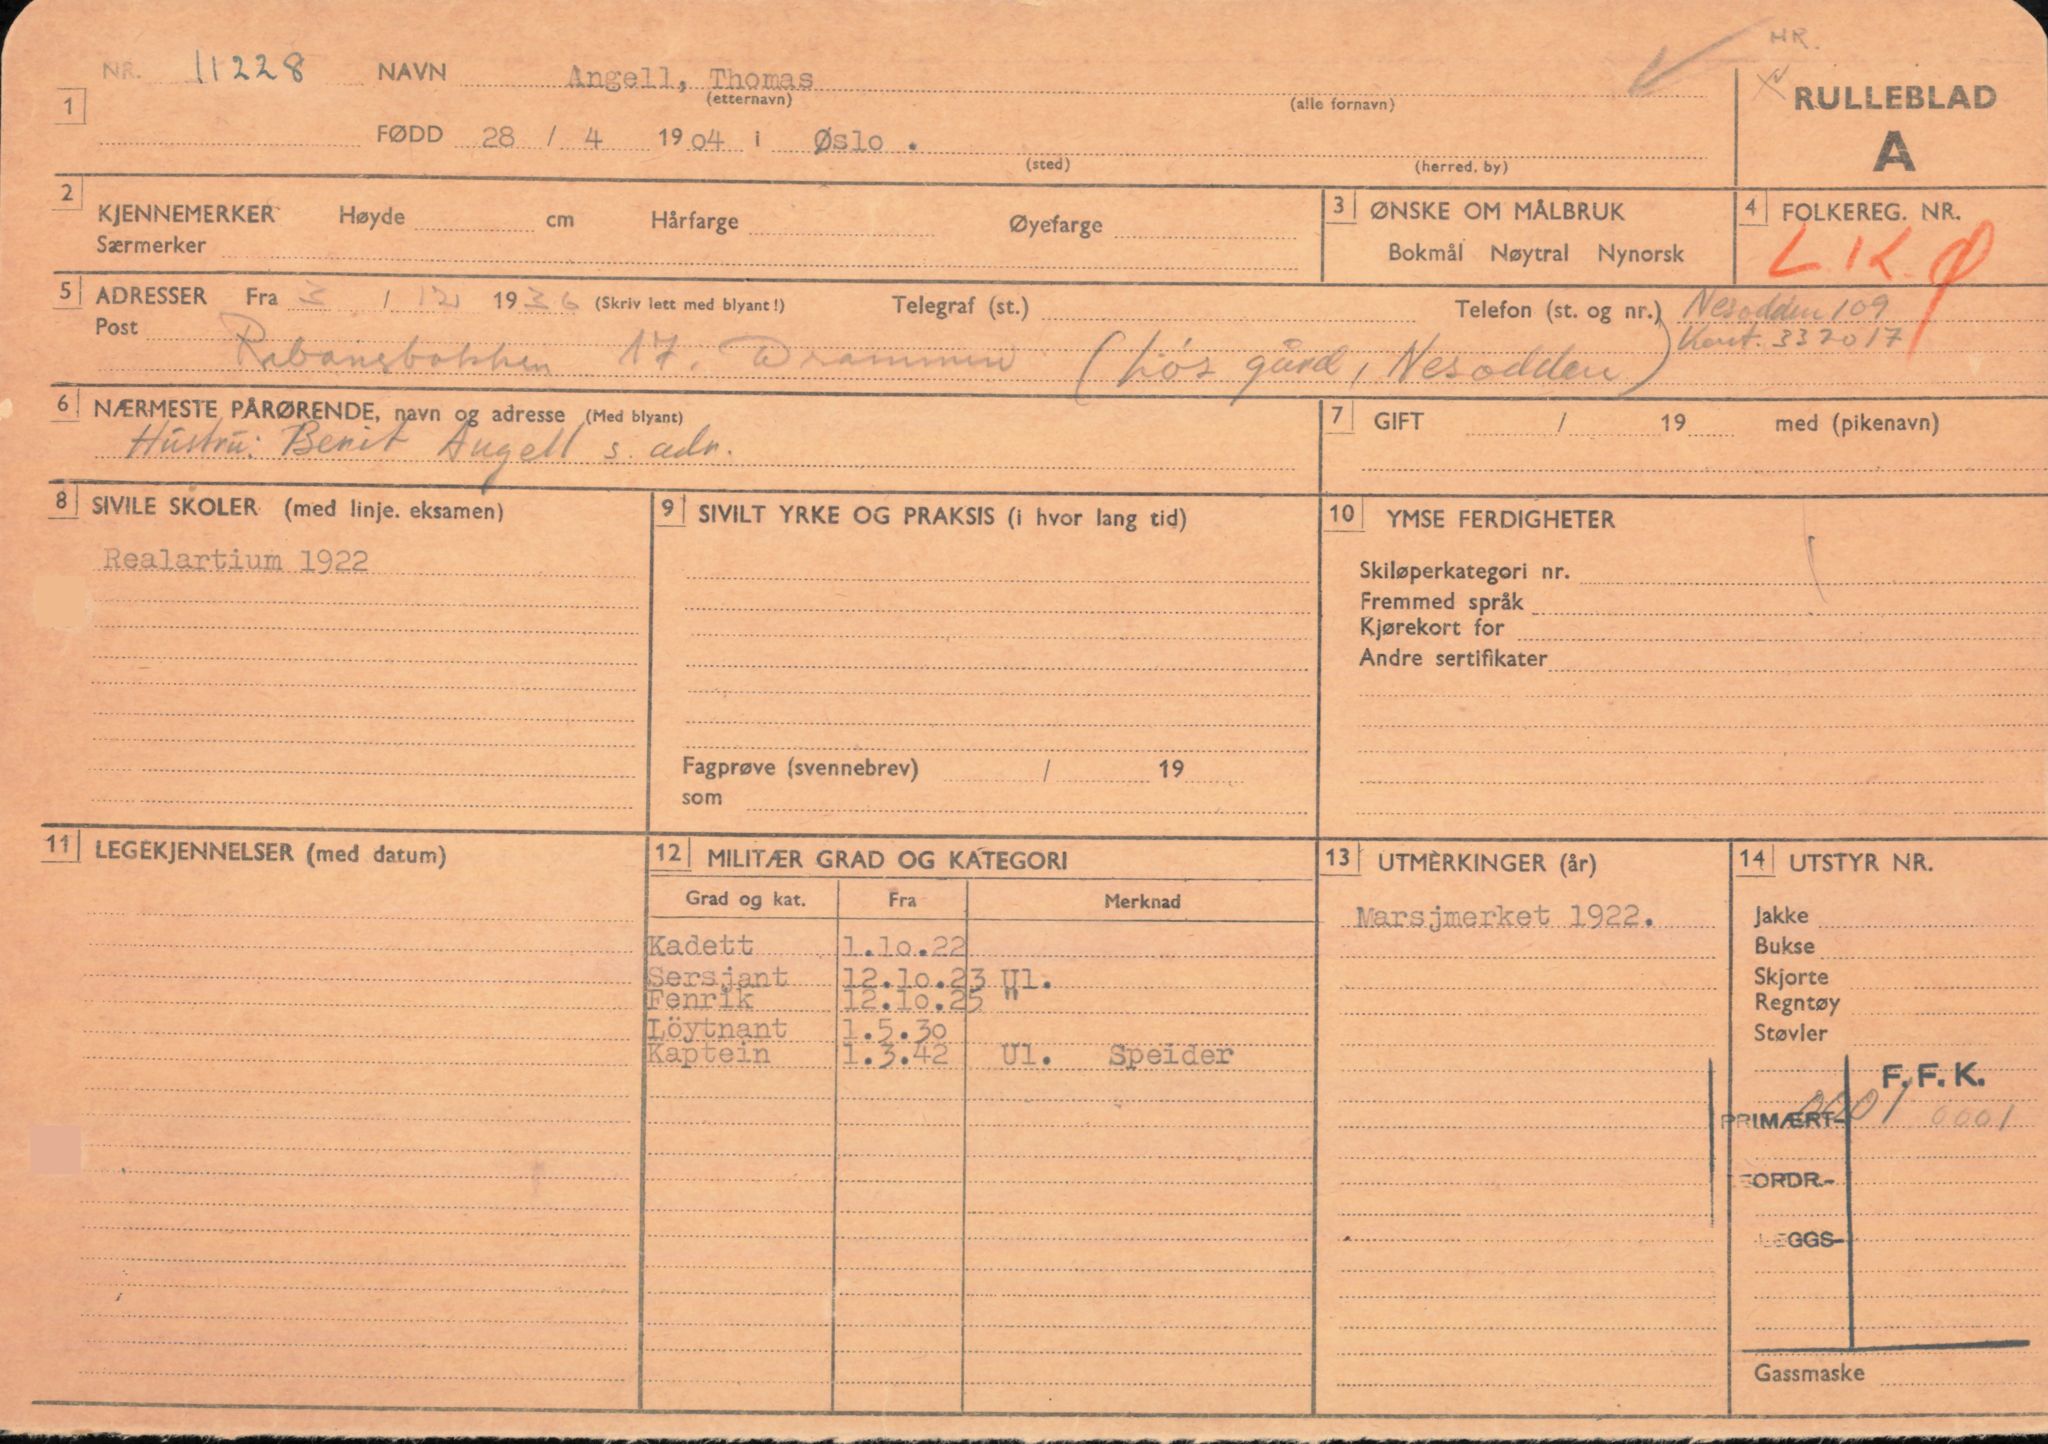 HR.
NR. 11228 NAVN Angell, Thomas
(etternavn) (alle fornavn)
RULLEBLAD
A
1
FØDD 28 / 4 1904 i Øslo .
(sted) (herred, by)
2 KJENNEMERKER Høyde cm Hårfarge Øyefarge
Særmerker
3 ØNSKE OM MÅLBRUK
Bokmål Nøytral Nynorsk
4 FOLKEREG. NR.
L.K.
5 ADRESSER Fra 3 / 12 1936 (Skriv lett med blyant!) Telegraf (st.) Telefon (st. og nr.) Nesodden 109
Kont. 332017
Post 17. Drammen ( gård, Nesodden)
6 NÆRMESTE PÅRØRENDE, navn og adresse (Med blyant)
Hustru: Berit Angell s. adr.
7 GIFT / 19 med (pikenavn)
8 SIVILE SKOLER (med linje. eksamen)
Realartium 1922
9 SIVILT YRKE OG PRAKSIS (i hvor lang tid)
Fagprøve (svennebrev) / 19
som
10 YMSE FERDIGHETER
Skiløperkategori nr.
Fremmed språk
Kjørekort for
Andre sertifikater
11 LEGEKJENNELSER (med datum)
12 MILITÆR GRAD OG KATEGORI
Grad og kat. Fra Merknad
Kadett 1.10.22
Sersjant 12.10.23 Ul.
Fenrik 12.10.25 "
Löytnant 1.5.30
Kaptein 1.3.42 Ul. Speider
13 UTMERKINGER (år)
Marsjmerket 1922.
14 UTSTYR NR.
Jakke
Bukse
Skjorte
Regntøy
Støvler
F. F. K.
PRIMÆRT- 0001 0001
EORDR.-
LEGGS-
Gassmaske